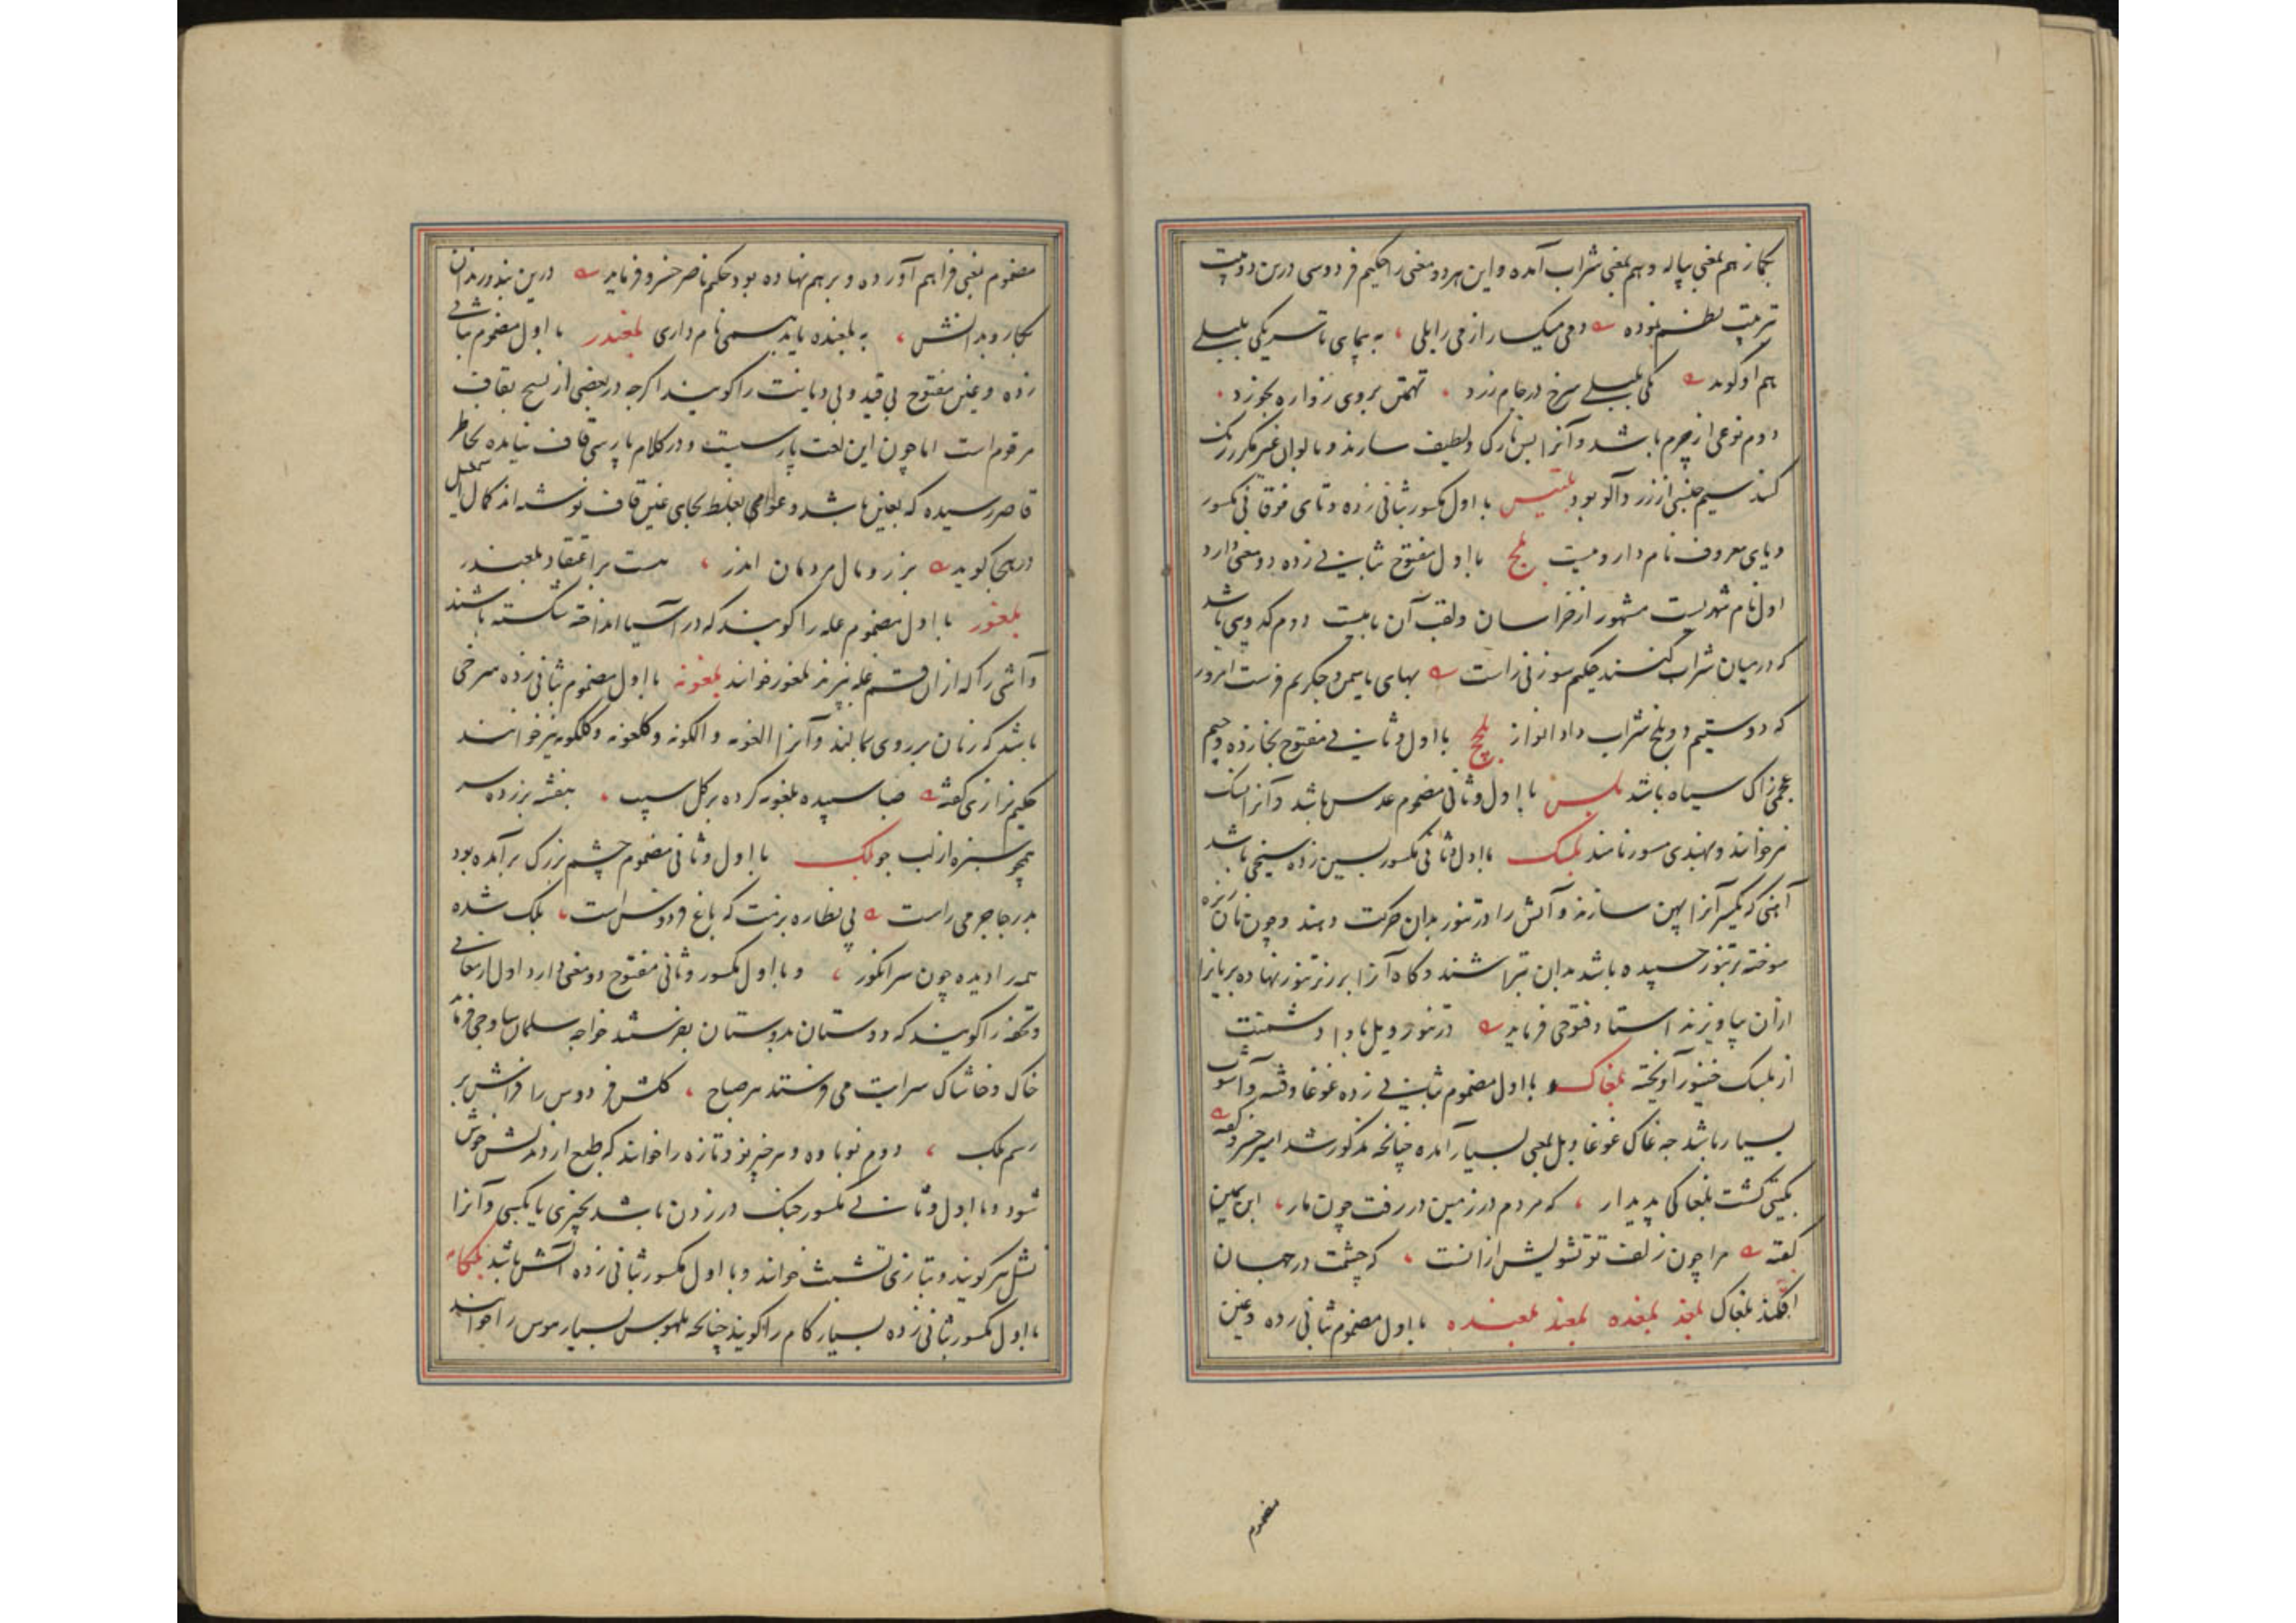 بکماز هم بمعنی پیاله و هم بمعنی شراب آمده و این هر دو معنی را حکیم فردوسی درین دو بیت
بترتیب نظم نموده دمی میکسار از می بلبلی به پیمای تا سر یکی بلبلی
هم او گوید یکی بلبلی سرخ در جام زرد تهمتن بروی زواره بخورد
دوم نوعی از چرم باشد و آنرا بس نازک و لطیف سازند و بالوان غیر مکرر رنگ
کنند سیم جنسی از زردآلو بود بلتیس با اول مکسور بثانی زده و تای فوقانی مکسور
و یای معروف نام داروییست بلخ با اول مفتوح بثانی زده دو معنی دارد
اول نام شهریست مشهور از خراسان و لقب آن بامیست دوم کدویی باشد
که در میان شراب کنند حکیم سوزنی راست بهای یاسمن و چکریم فرست امروز
که دوستیم دو بلخ شراب داد انواز بلخچ با اول و ثانی مفتوح بخا زده و جیم
عجمی زاک سیاه باشد بلس با اول و ثانی مضموم عدس باشد و آنرا نسک
نیز خوانند و بهندی مسور نامند بلسک با اول و ثانی مکسور بسین زده سیخی باشد
آهنی که یکسر آنرا پهن سازند و آتش را در تنور بدان حرکت دهند و چون نان ریزه
سوخته در تنور چسپیده باشد بدان تراشند و کاه آنرا بر زبر تنور نهاده بریانرا
ازان بیاویزند استاد فتوحی فرماید در تنور ویل بادا دشمنت
از بلسک خنور آویخته بلغاک با اول مضموم بثانی زده غوغا و فتنه و آشوب
بسیار باشد چه غاک غوغا و بل بمعنی بسیار آمده چنانچه مذکور شد امیر خسرو گفته
بگیتی گشت بلغاکی پدیدار که مردم در زمین در رفت چون مار ابن یمین
گفته مرا چون زلف تو تشویش ازانست که چشمت در جهان
افکند بلغاک بلغد بلغده بلغند بلغنده با اول مضموم بثانی زده و غین
مضموم
مضموم بمعنی فراهم آورده و بر هم نهاده بود حکیم ناصر خسرو فرماید درین بند و زندان
بکار و بدانش به بلغنده باید همی نامداری بلغندر با اول مضموم بثانی
زده و غین مفتوح بی قید و بی دیانت را گویند اگرچه در بعضی از نسخ بقاف
مرقوم است اما چون این لغت پارسیست و در کلام پارسی قاف نیامده بخاطر
قاصر رسیده که بغین باشد و عوام بغلط بجای غین قاف نوشته اند کمال اسمعیل
در هجا گوید بر زر و مال مردمان اندر هست بر اعتقاد بلغندر
بلغور با اول مضموم غله را گویند که در آسیا انداخته شکسته باشند
و آشی را که ازان قسم غله پزند بلغور خوانند بلغونه با اول مضموم بثانی زده سرخی
باشد که زنان بر روی بمالند و آنرا الغونه و الگونه و گلغونه و گلگونه نیز خوانند
حکیم نزاری گفته صبا سپیده بلغونه کرده بر گل سیب بنفشه بر زده سر
همچو سبزه از لب جو بلک با اول و ثانی مضموم چشم بزرگ برآمده بود
بدر جاجرمی راست پی نظاره بزمت که باغ فردوس است بلک شده
همه را دیده چون سر انگور و با اول مکسور و ثانی مفتوح دو معنی دارد اول ارمغانی
و تحفه را گویند که دوستان بدوستان بفرستند خواجه سلمان ساوجی فرماید
خاک و خاشاک سرایت می فرستد هر صباح گلشن فردوس را فراش بر
رسم بلک دوم نوباوه و هر چیز نو و تازه را خوانند که طبع از دیدنش خوش
شود و با اول و ثانی مکسور چنگ در زدن باشد بچیزی یا بکسی و آنرا
نشل هم گویند و بتازی تشبث خوانند و با اول مکسور بثانی زده آتش باشد بلکامه
با اول مکسور بثانی زده بسیار کام را گویند چنانچه بلهوس بسیار هوس را خوانند